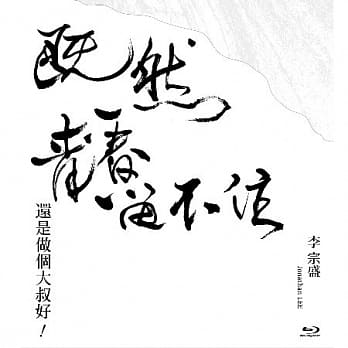 既然
青春留不住
還是做個大叔好！
李宗盛
Jonathan LEE
Blu-ray